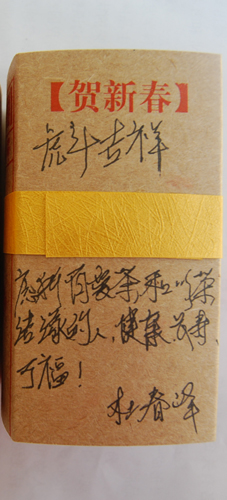 【贺新春】
虎年吉祥
愿所有爱茶和以茶
结缘的人,健康长寿、
幸福!
杜春峰